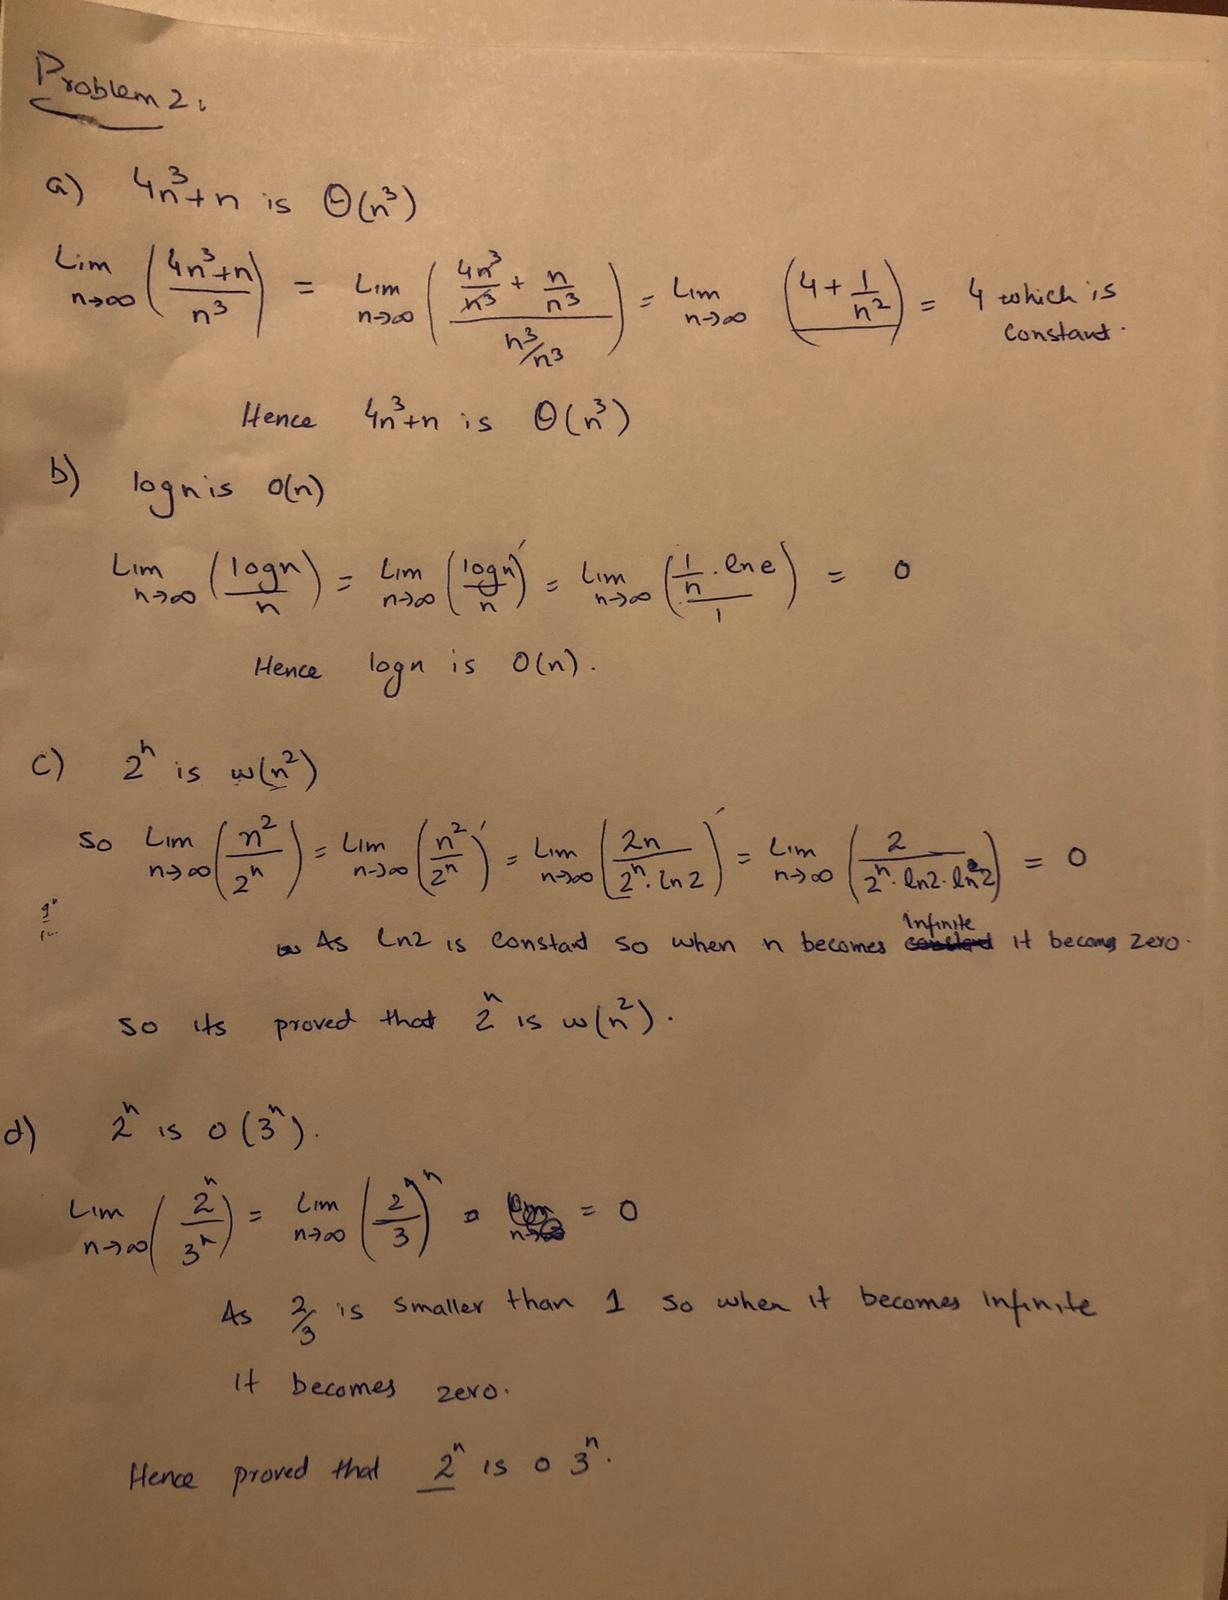 Problem 2.
a) 4n³+n is Θ(n³)
Lim n→∞ ((4n³+n)/n³) = Lim n→∞ ((4n³/n³ + n/n³)/(n³/n³)) = Lim n→∞ (4+1/n²) = 4 which is
constant.
Hence 4n³+n is Θ(n³)
b) logn is o(n)
Lim n→∞ (logn/n) = Lim n→∞ (logn/n)′ = Lim n→∞ ((1/n . ln e)/1) = 0
Hence logn is o(n).
c) 2ⁿ is ω(n²)
So Lim n→∞ (n²/2ⁿ) = Lim n→∞ (n²/2ⁿ)′ = Lim n→∞ (2n/(2ⁿ.ln2))′ = Lim n→∞ (2/(2ⁿ.ln2.ln2)) = 0
As ln2 is constant so when n becomes infinite it becoms zero.
so its proved that 2ⁿ is ω(n²).
d) 2ⁿ is o(3ⁿ).
Lim n→∞ (2ⁿ/3ⁿ) = Lim n→∞ (2/3)ⁿ = 0
As 2/3 is smaller than 1 so when it becomes infinite
it becomes zero.
Hence proved that 2ⁿ is o 3ⁿ.